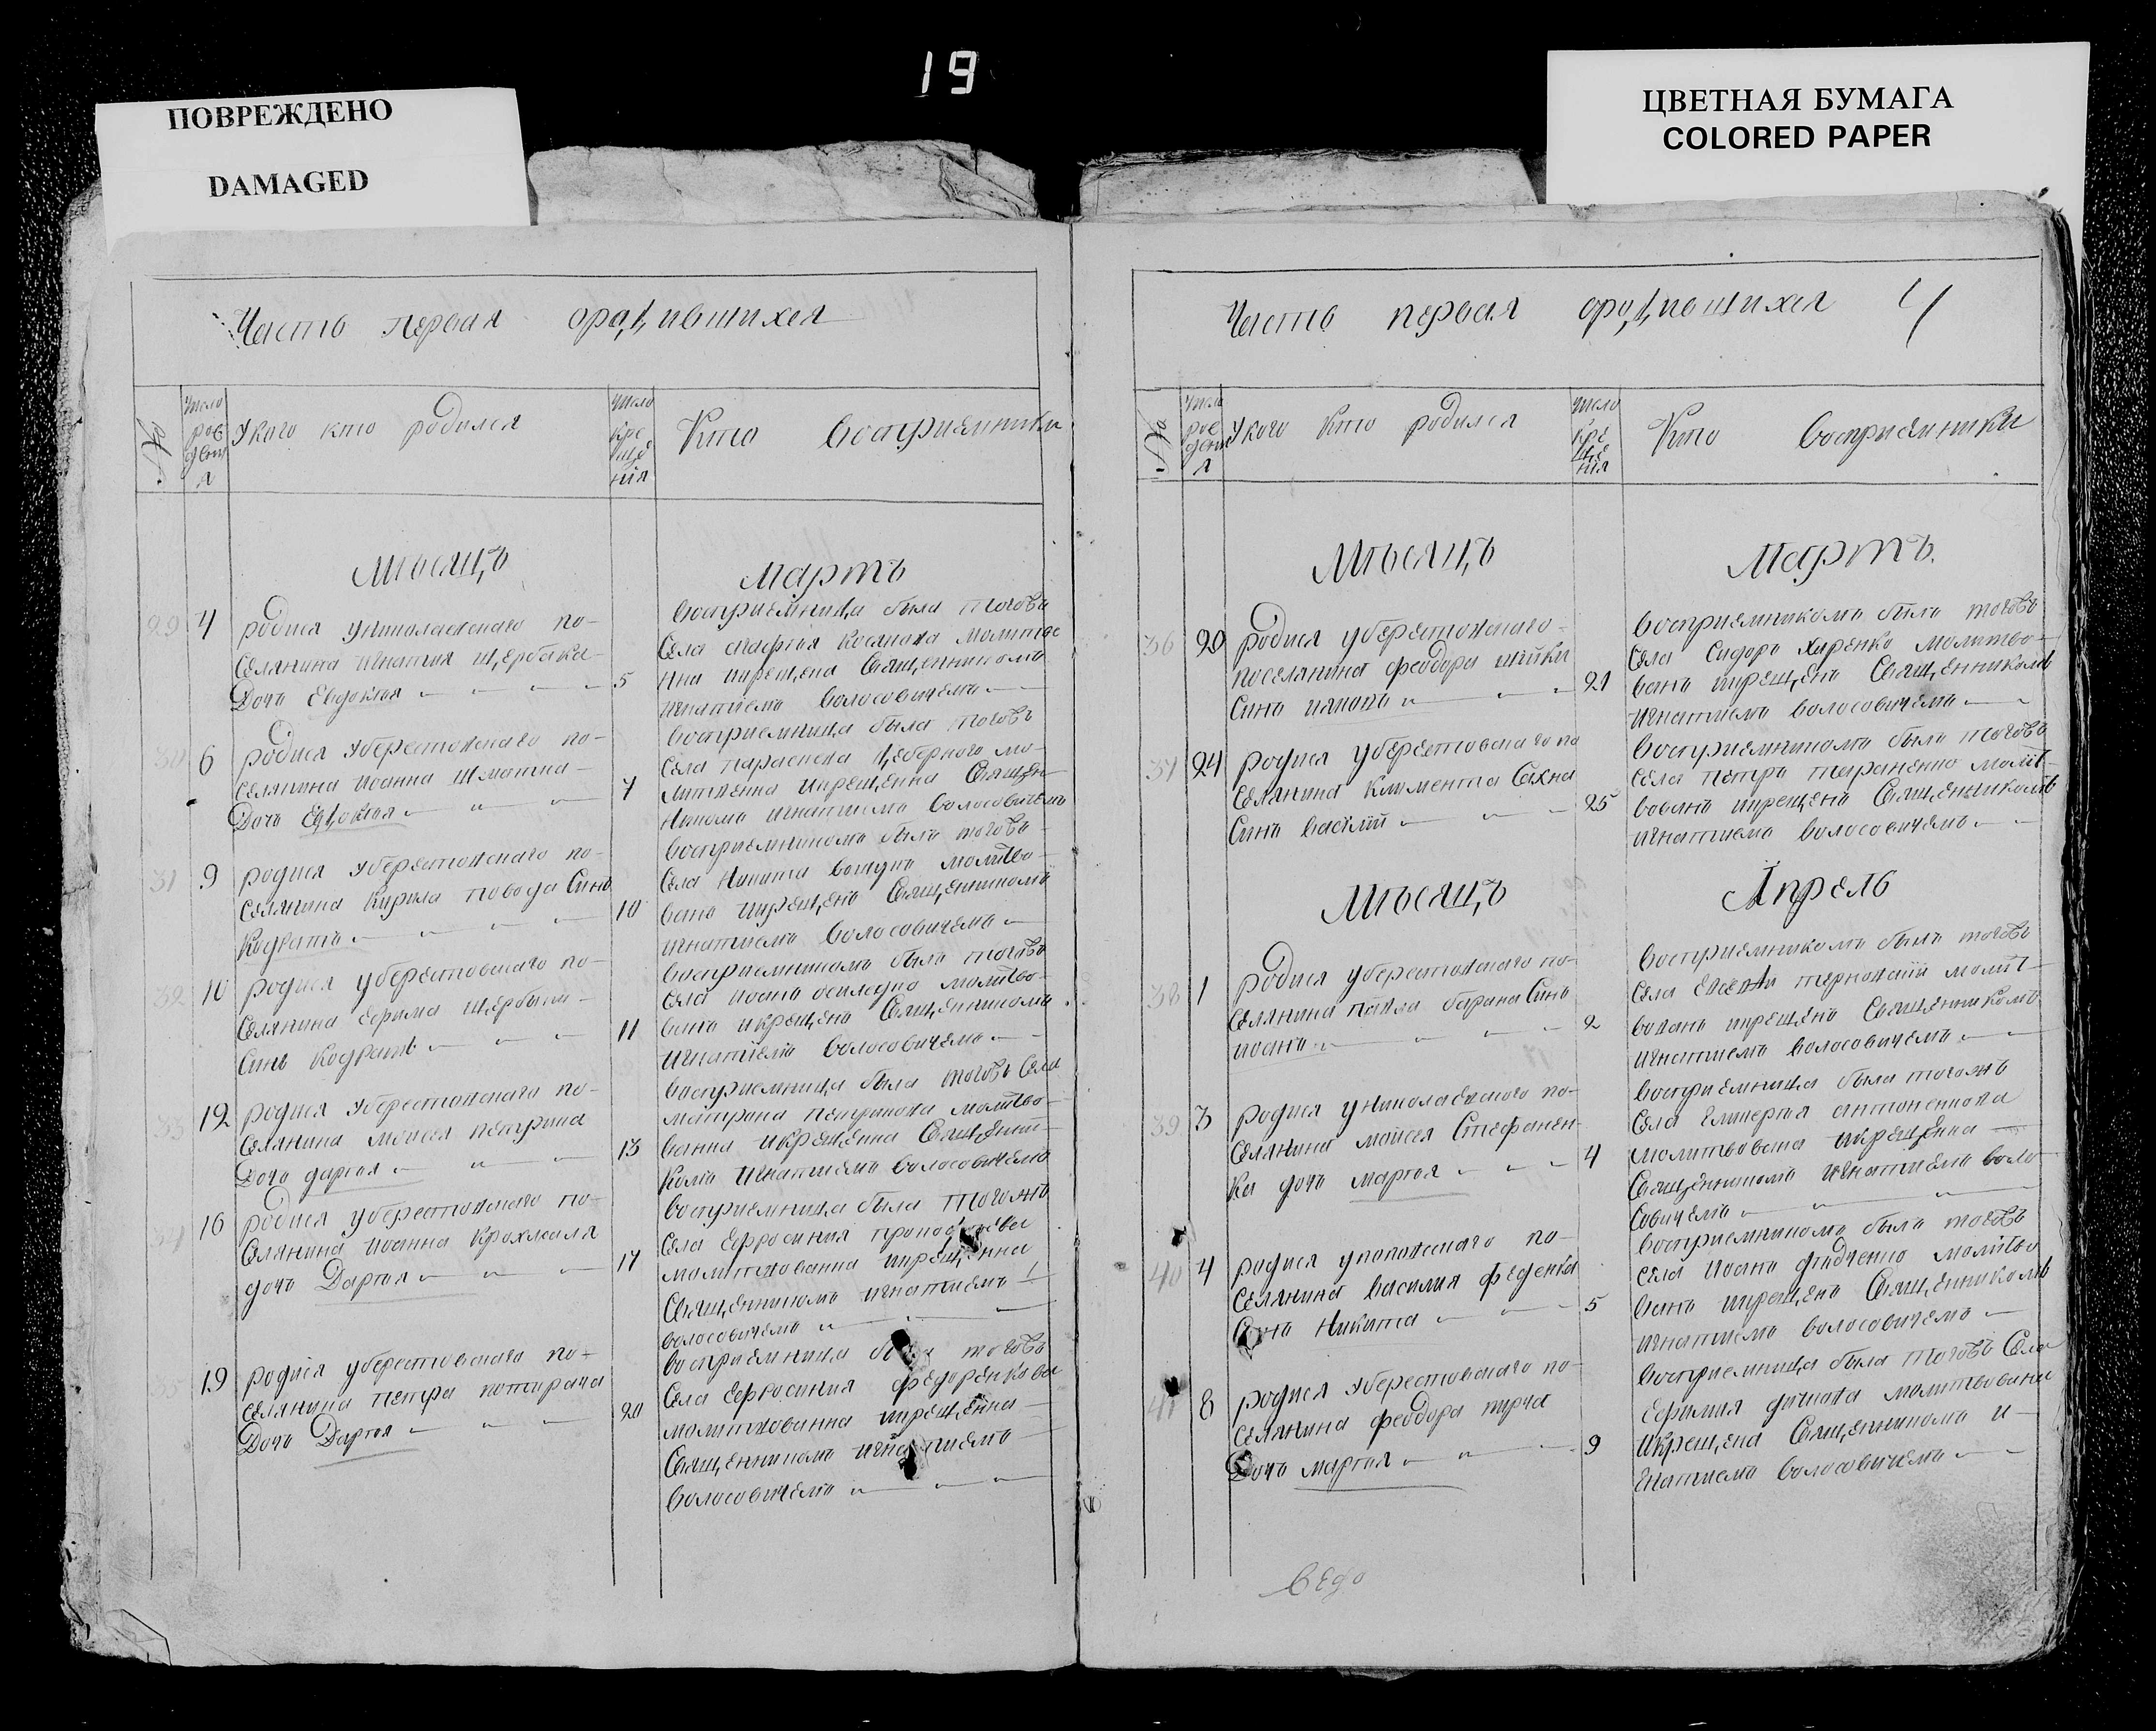 19
ПОВРЕЖДЕНО
DAMAGED
ЦВЕТНАЯ БУМАГА
COLORED PAPER
Часть первая ородившихся
№
Число рождения
Укого кто родился
Число крещения
Кто восприемники
Мѣсяцъ Мартъ
29 4 родися униколаевского по-
селянина игнатия щербака
Дочь Евдокия 5
восприемница была тогожъ
села марфия косакова молитвов
нна икрещена Священникомъ
игнатиемъ волосовичемъ
30 6 родися уберестовского по-
селянина иоанна шматка
Дочь Евдокия 7
восприемница была тогожъ
села параскева
литвенна икрещенна Священ-
никомъ игнатиемъ волосовичемъ
31 9 родися уберестовского по-
селянина кирила повода Синъ
Кодратъ 10
восприемникомъ былъ тогожъ
села Никита молитво-
ванъ икрещенъ Священникомъ
игнатиемъ волосовичемъ
32 10 родися уберестовского по-
селянина Ефима щербини
Синъ Кодратъ 11
восприемникомъ былъ тогожъ
села иоанъ молитво-
ванъ икрещенъ Священникомъ
игнатиемъ волосовичемъ
33 12 родися уберестовского по-
селянина моисея петрина
Дочь дария 13
восприемница была тогожъ Села
матрона петринова молитво-
ванна икрещенна Священни-
комъ игнатиемъ волосовичемъ
34 16 родися уберестовского по-
селянина иоанна Крохмаля
дочь Дария 17
восприемница была тогожъ
села Ефросиния
молитвованна икрещенна
Священникомъ игнатиемъ
волосовичемъ
35 19 родися уберестовского по-
селянина петра потирача
Дочь Дария 20
восприемница была тогожъ
Села Ефросиния федоренкова
молитвованна икрещенна
Священникомъ игнатиемъ
волосовичемъ
Часть первая ородившихся 4
№
Число рождения
Укого кто родился
Число крещения
Кто восприемники
Мѣсяцъ Мартъ
36 20 родися уберестовского
поселянина феодора шийки
Синъ иаковъ 21
восприемникомъ былъ тогожъ
села Сидоръ Хиренко молитво-
ванъ икрещенъ Священникомъ
игнатиемъ волосовичемъ
37 24 родися уберестовского по
селянина климента Сахна
Синъ василий 25
восприемникомъ былъ тогожъ
села петръ тараненко молит-
вованъ икрещенъ Священникомъ
игнатиемъ волосовичемъ
Мѣсяцъ Апрель
38 1 родися уберестовского по-
селянина павла барана Синъ
иоанъ 2
восприемникомъ былъ тогожъ
села Евсевий терновский молит-
вованъ икрещенъ Священникомъ
игнатиемъ волосовичемъ
39 3 родися униколаевского по-
селянина моисея Стефанен-
ка дочь мария 4
восприемница была тогожъ
села гликерия антоненкова
молитвована икрещенна
Священникомъ игнатиемъ воло
совичемъ
40 4 родися упоповского по-
селянина василия феденка
Синъ Никита 5
восприемникомъ былъ тогожъ
села иоанъ диденко молитво
ванъ икрещенъ Священникомъ
игнатиемъ волосовичемъ
41 8 родися уберестовского по-
селянина феодора пирча
Дочь мария 9
восприемница была тогожъ Села
Ефимия молитвованна
икрещена Священникомъ и-
гнатиемъ волосовичемъ